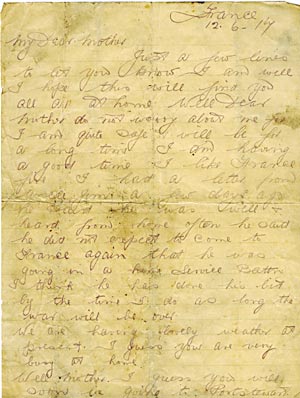 France
12.6.17
My Dear Mother
Just a few lines
to let you know I am well
I hope this will find you
all at home Well Dear
Mother do not worry about me for
I am quite safe & will be for
a long time I am having
a good time I like France
fine I had a letter from
a few days ago
he said he was well &
heard from home often he said
he did not expect to come to
France again that he was
going in a home service Battn
I think he has done his bit
by the time I do as long the
war will be over
We are having lovely weather at
present. I guess you are very
busy at home
Well Mother I guess you will
soon be going to Portstewart